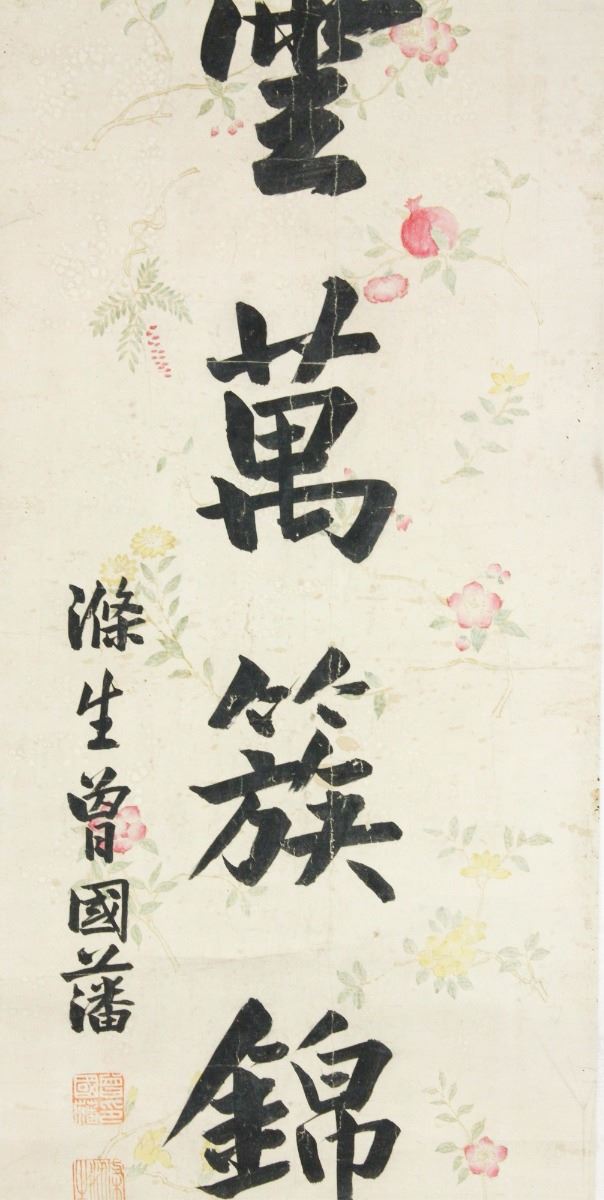 萬簇錦
滌生曾國藩